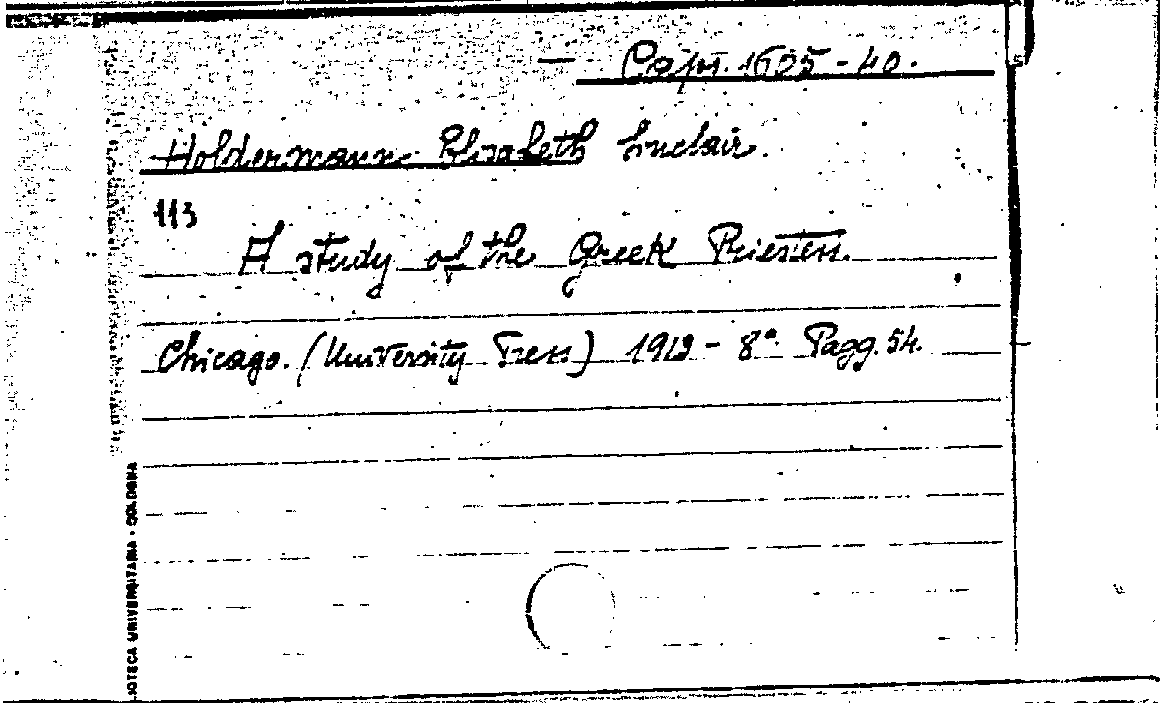 Caps. 1605-40.
Holdermann Elisabeth Sinclair.
113
A study of the Greek Priestess.
Chicago. (University Press) 1913 - 8° Pagg. 54.
IOTECA UNIVERSITARIA · BOLOGNA